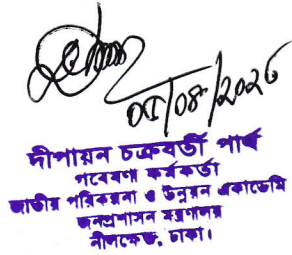 ০৫/০৪/২০২৬
দীপায়ন চক্রবর্তী পার্থ
গবেষণা কর্মকর্তা
জাতীয় পরিকল্পনা ও উন্নয়ন একাডেমি
জনপ্রশাসন মন্ত্রণালয়
নীলক্ষেত, ঢাকা।